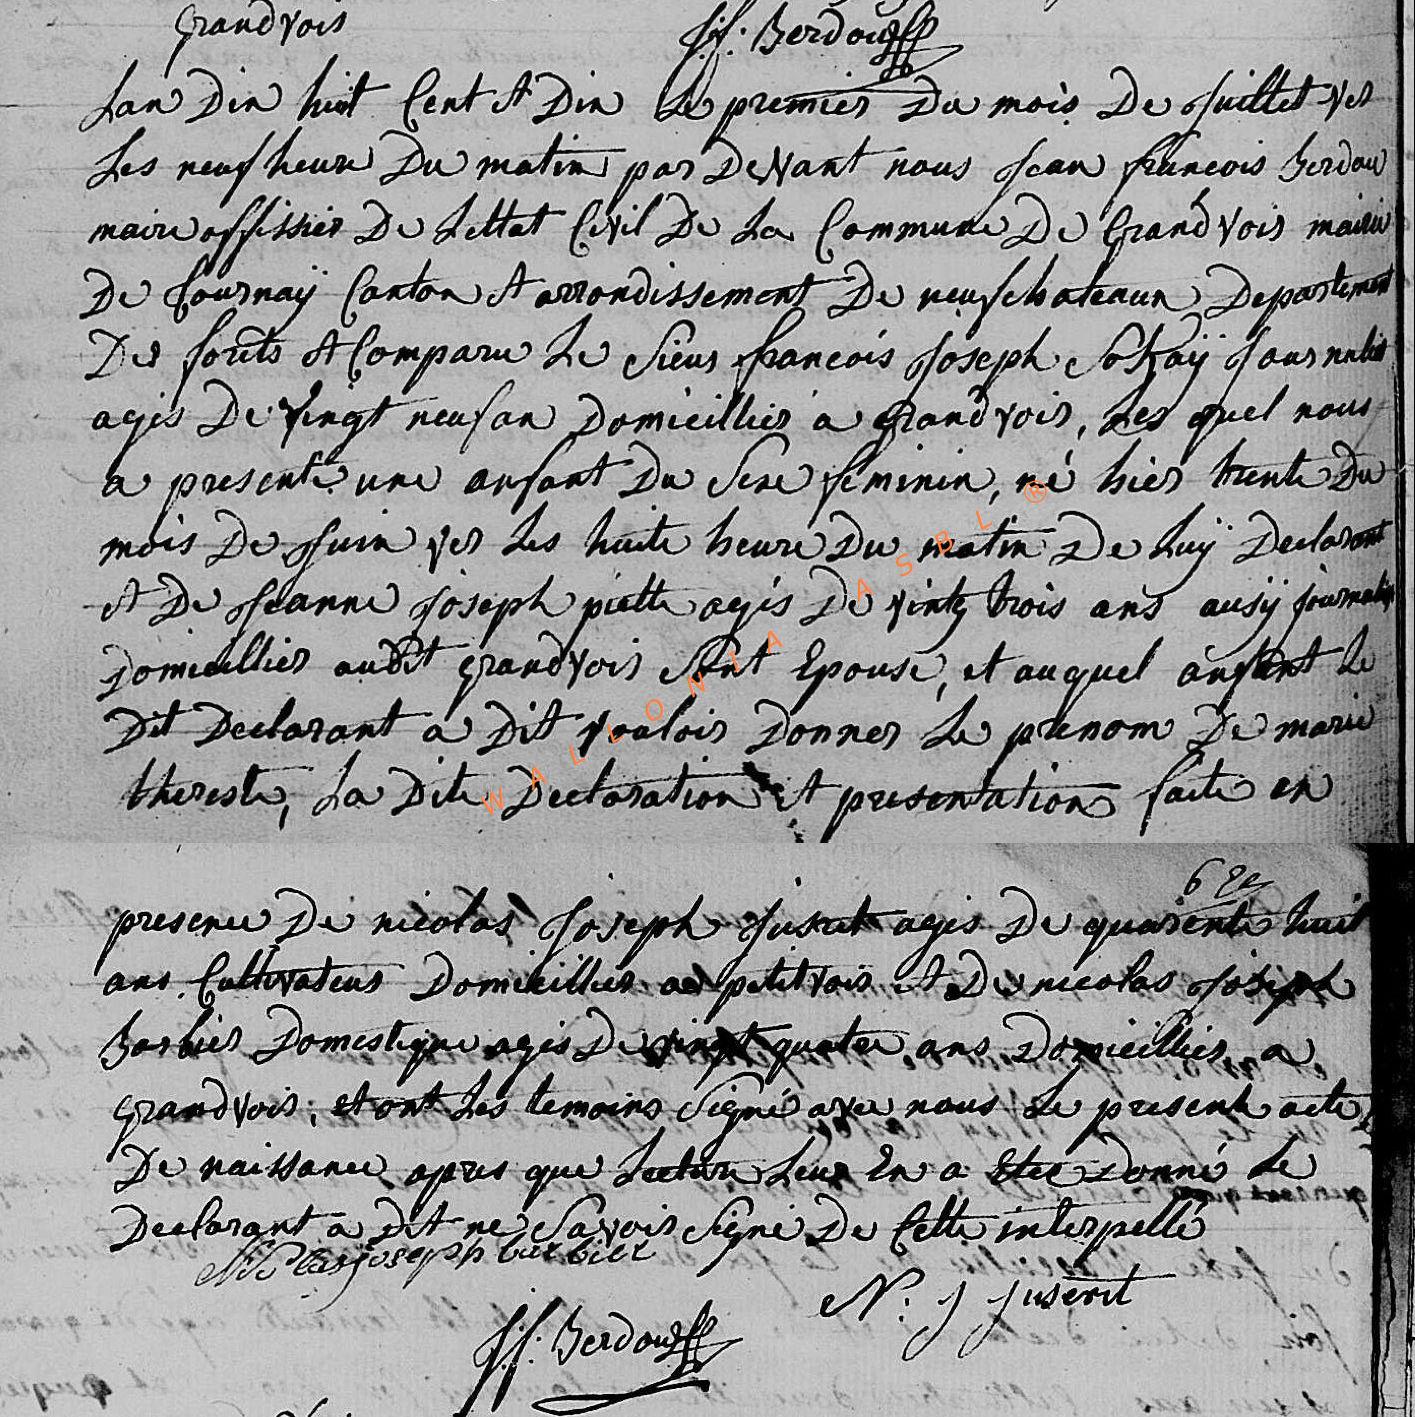 Grandvois J.f. Berdou
Lan Dix huit Cent et Dix Le premier Du mois De Juillet ver
Les neuf heure Du matin par DeVant nous Jean francois Berdou
maire offissier De Lettat Civil De La Commune De Grandvois mairie
De tournaÿ Canton et arrondissement De neufchateaux Departement
Des forêts et Comparu Le Sieur francois Joseph SoKaÿ Journalier
agis De vingt neuf an Domicillier a Grandvois, Les quel nous
a presenté une anfant Du Sexe feminin, né hier trente Du
mois De Juin ver Les huite heure Du matin De Luÿ Declarant
et De Jeanne Joseph piette agis De vintg trois ans ausÿ journalier
Domicillier audit grandvois Sont Epouse, et auquel anfant Le
Dit Declarant a Dit vouloir Donner Le prenom De marie
thereste, La Dite Declaration et presentation faite en
6 Ee
presence De nicolas Joseph Juseret agis De quarente huit
ans Cultivateur Domicillier a petitvoir et De nicolas Joseph
Barbier Domestique agis De vingt quatre ans Domicillier a
grandvois, et ont Les temoins Signé avec nous Le present acte
De naissance apres que Lecture Leur En a Etee Donné Le
Declarant a Dit ne Savoir Signé De Cette interpellé
Nicolas joseph barbier
N. J Juseret
J.f. Berdou
WALLONIA ASBL ®